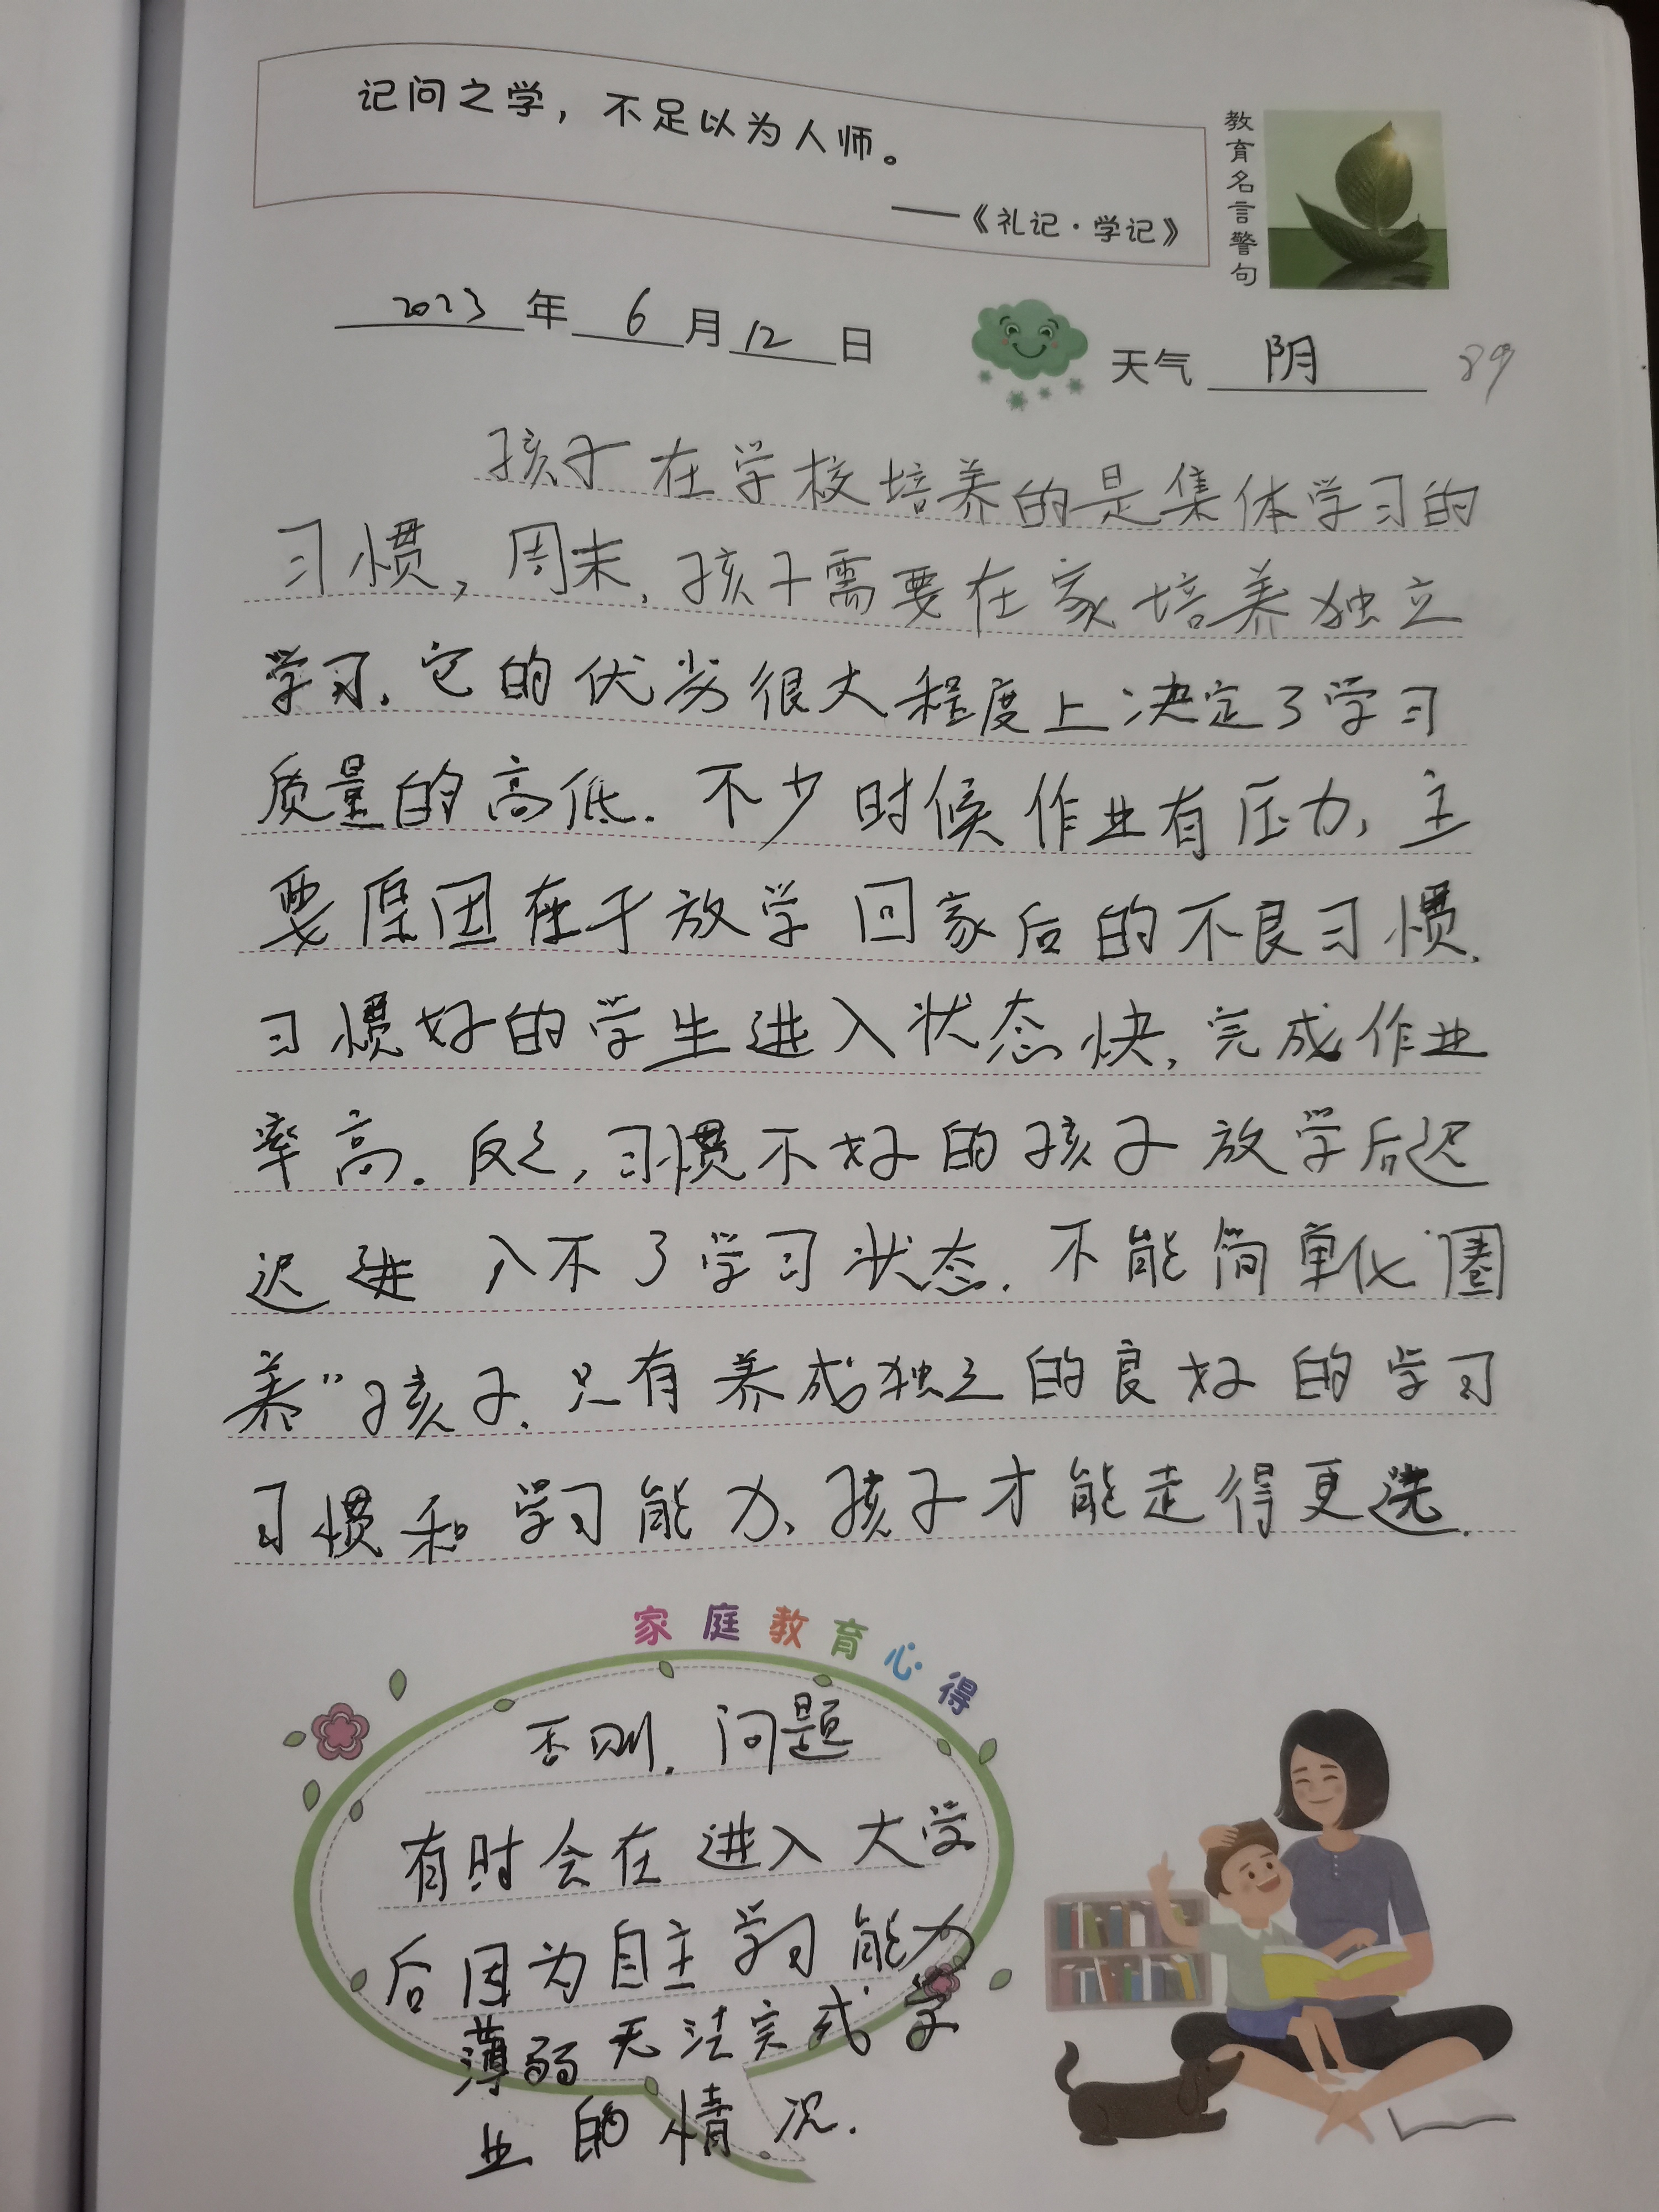 记问之学，不足以为人师。
——《礼记·学记》
教育名言警句
2023年6月12日
天气 阴 89
孩子在学校培养的是集体学习的
习惯，周末，孩子需要在家培养独立
学习.它的优劣很大程度上决定了学习
质量的高低.不少时候作业有压力,主
要原因在于放学回家后的不良习惯.
习惯好的学生进入状态快,完成作业
率高.反之,习惯不好的孩子放学后迟
迟进入不了学习状态.不能简单化“圈
养”孩子.只有养成独立的良好的学习
习惯和学习能力、孩子才能走得更远.
家庭教育心得
否则.问题
有时会在进入大学
后因为自主学习能力
薄弱无法完成学
业的情况.